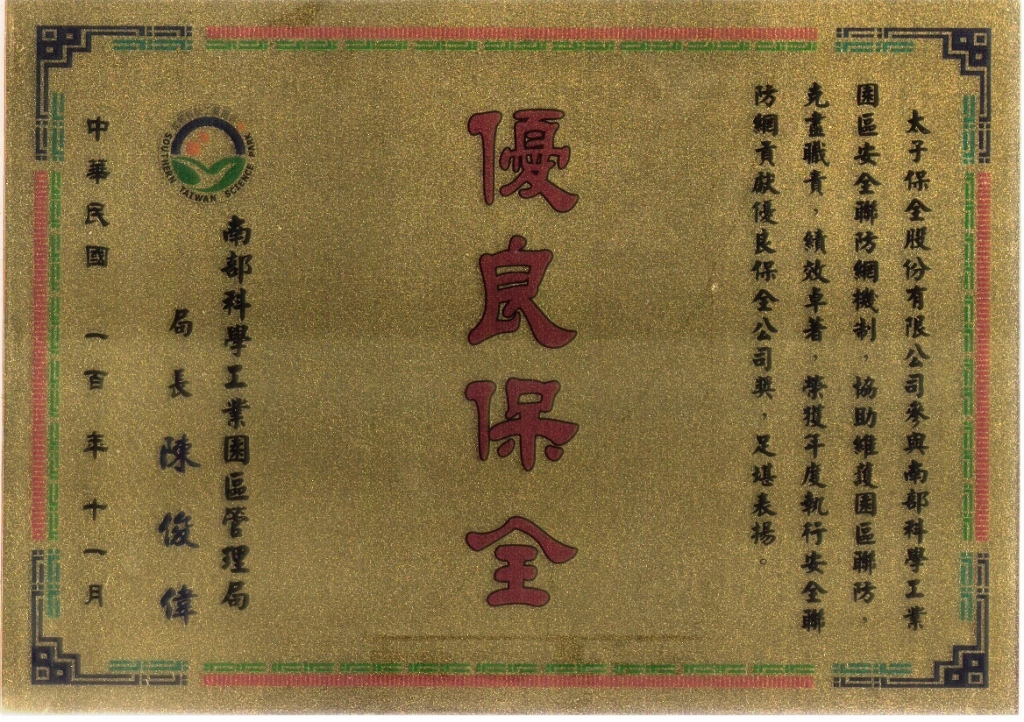 太子保全股份有限公司參與南部科學工業
園區安全聯防網機制，協助維護園區聯防，
克盡職責，績效卓著，榮獲年度執行安全聯
防網貢獻優良保全公司獎，足堪表揚。
優良保全
SOUTHERN TAIWAN SCIENCE PARK
南部科學工業園區管理局
局長 陳俊偉
中華民國 一百年十一月